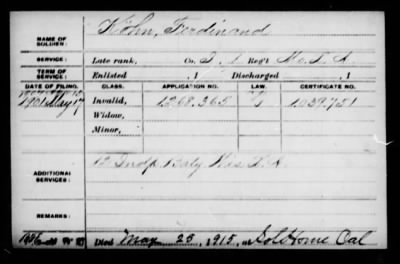 Köhn, Ferdinand
NAME OF SOLDIER:
SERVICE: Late rank, Co. I, 1 Reg't Mo. L. A.
TERM OF SERVICE: Enlisted , 1 Discharged , 1
DATE OF FILING. CLASS. APPLICATION NO. LAW. CERTIFICATE NO.
1901 May 17 Invalid, 1268.365 1039.751
Widow,
Minor,
ADDITIONAL SERVICES: 12 Indp. Baty Wis L. A.
REMARKS:
Died May 25, 1915, at Sol Home Cal